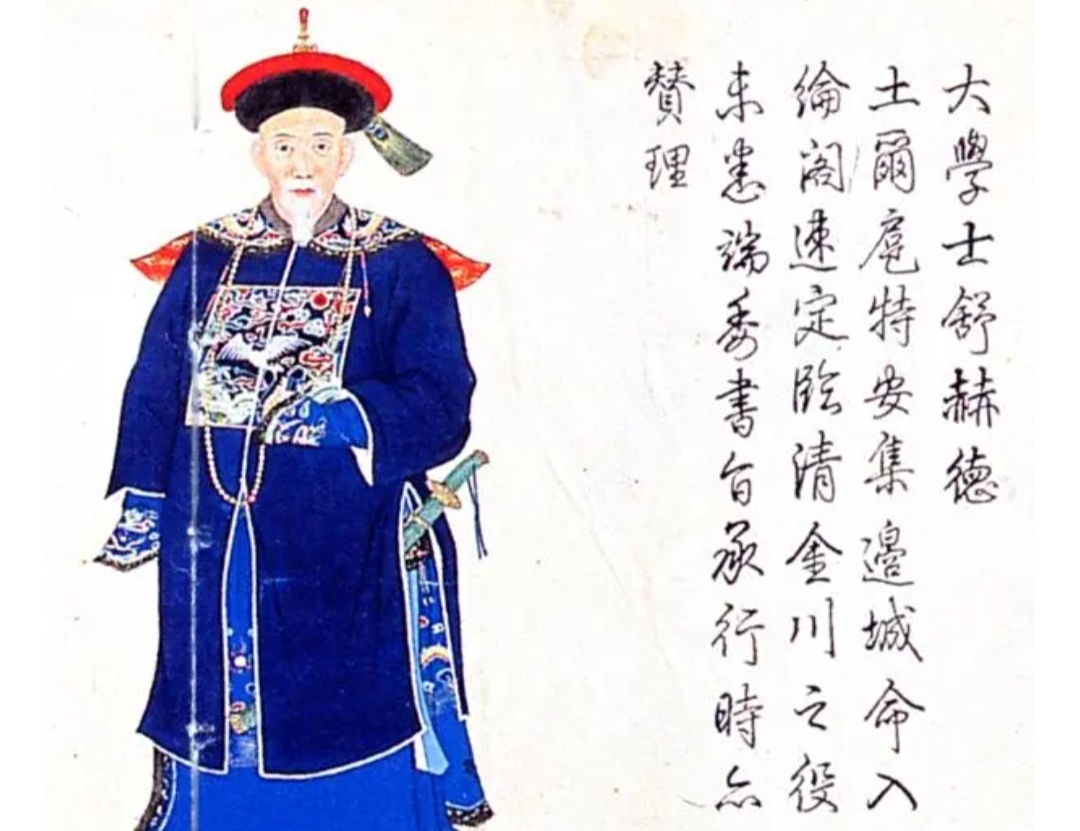 大學士舒赫德
土爾扈特安集邊城命入
綸閣速定臨清金川之役
未悉端委書旨承行時亦
贊理